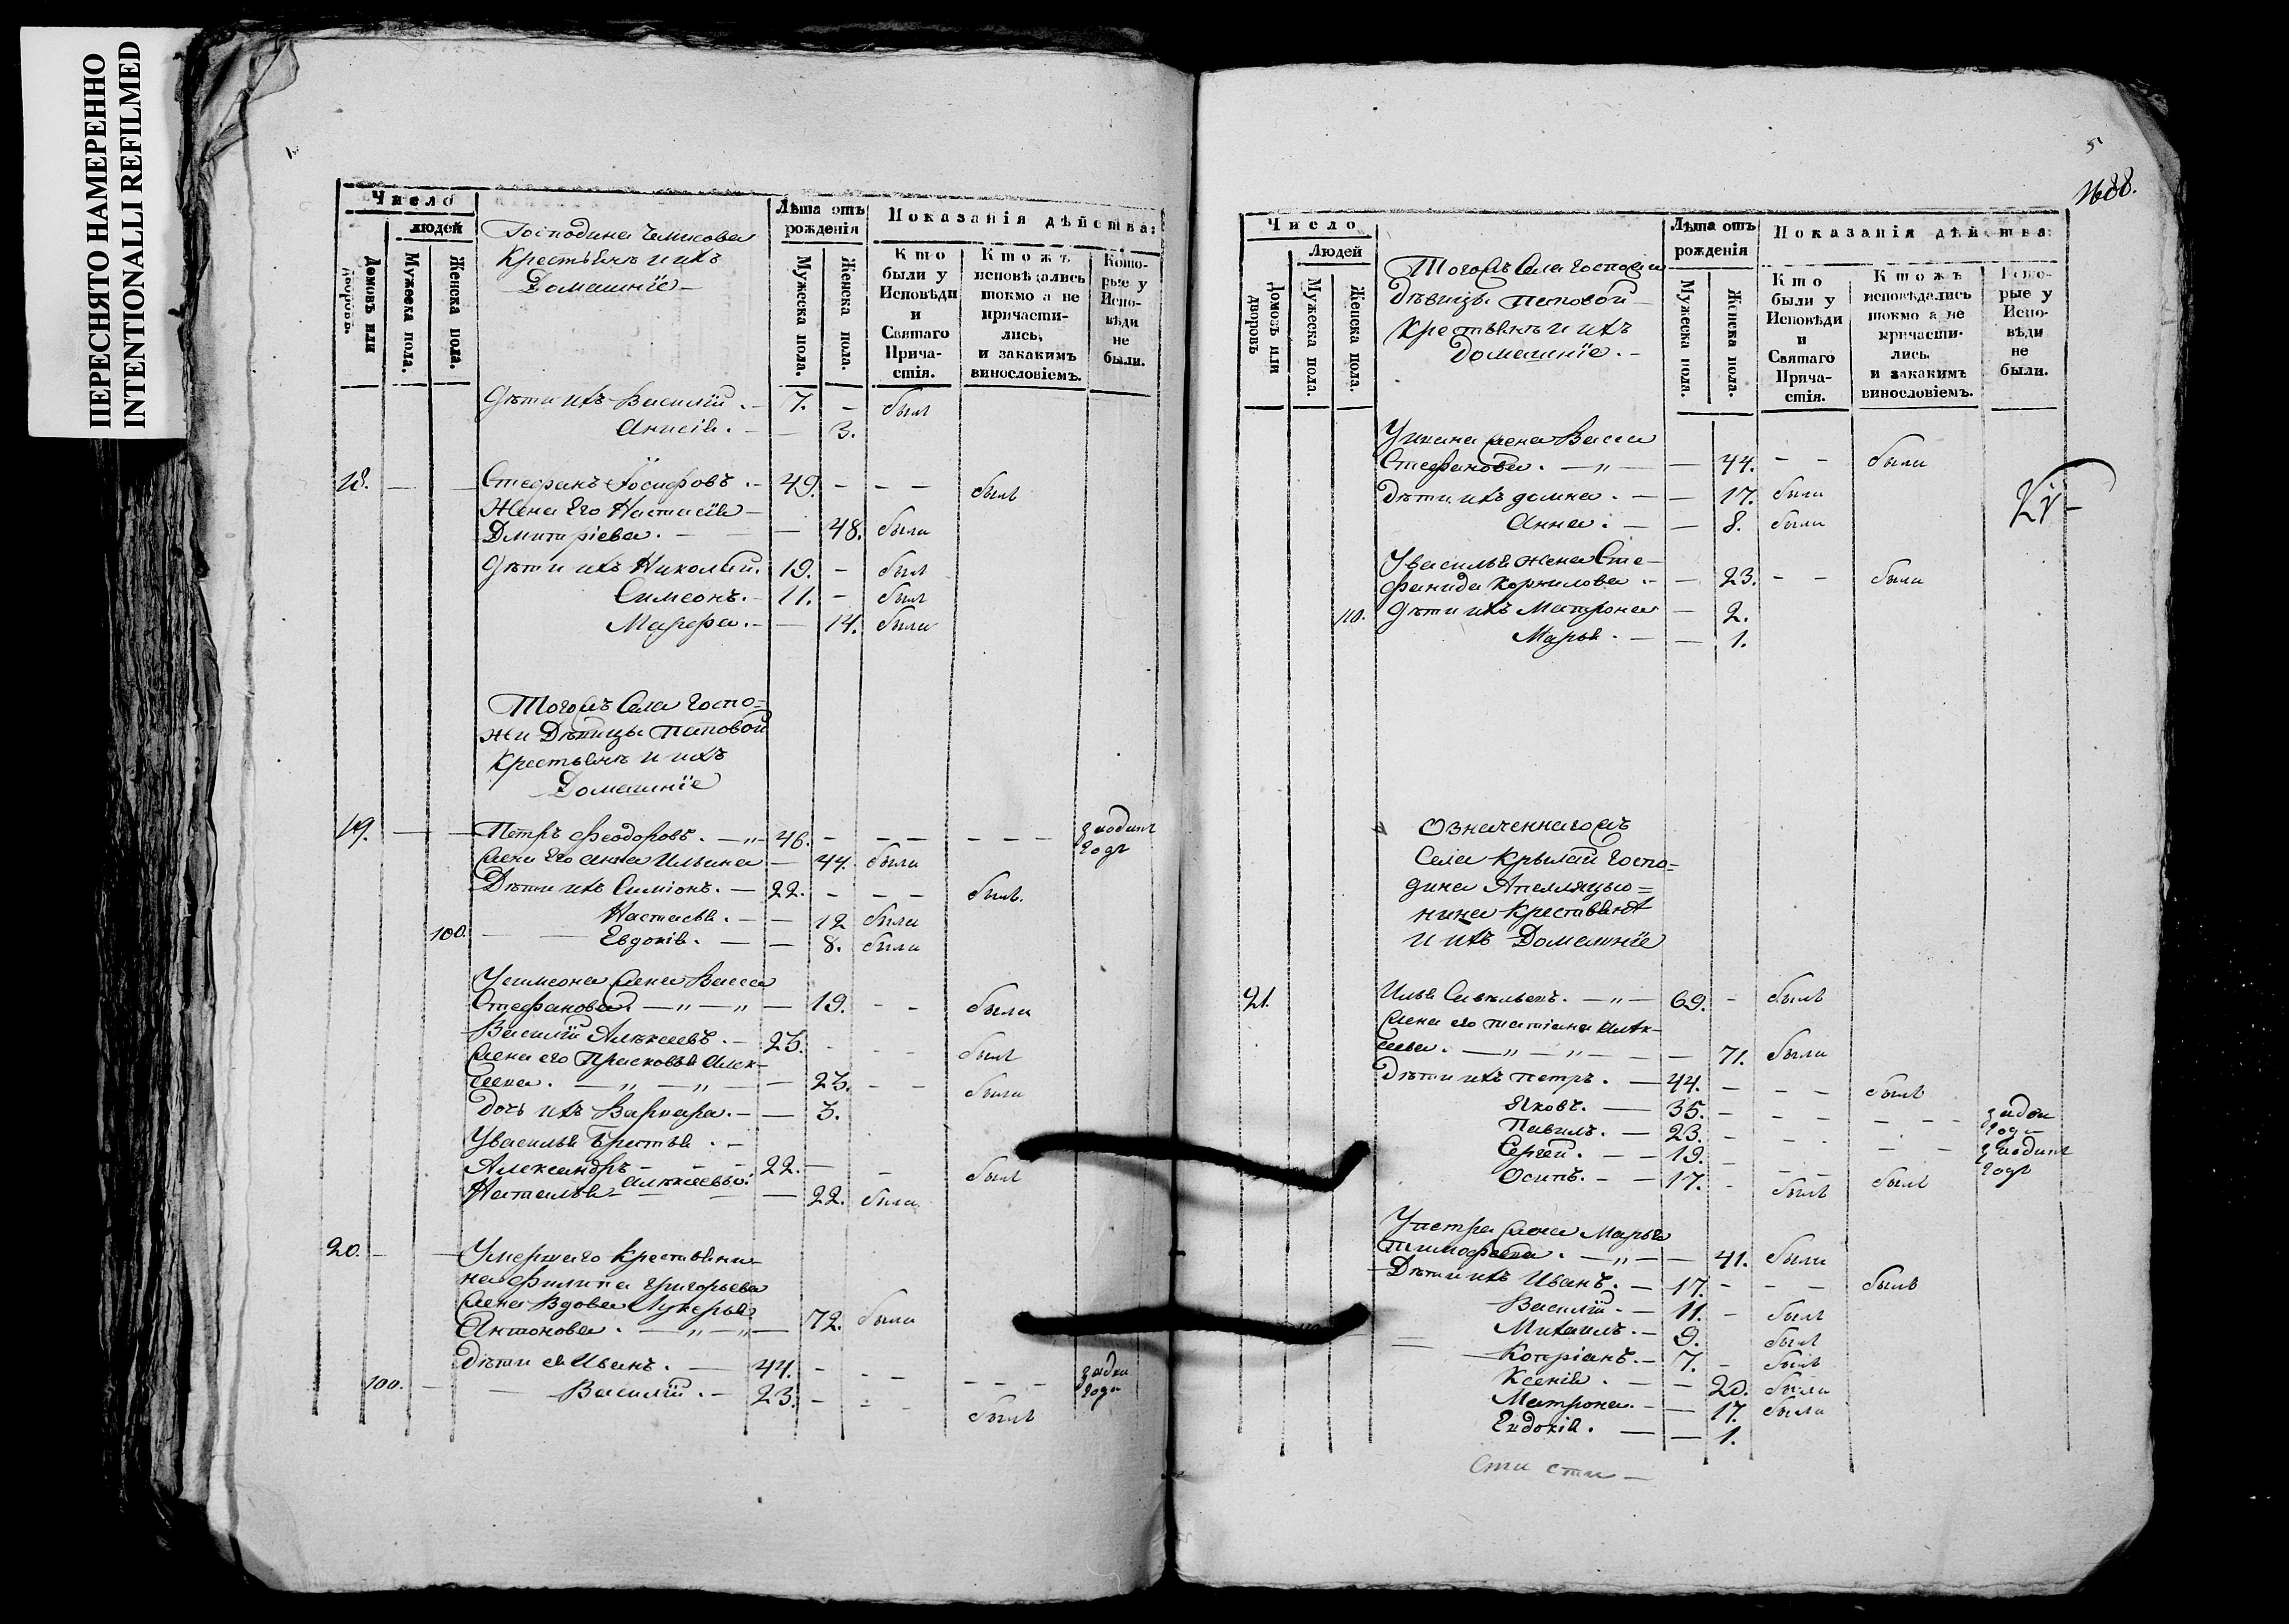 ПЕРЕСНЯТО НАМЕРЕННО
INTENTIONALLI REFILMED
Число
людей
Домовъ или дворовъ.
Мужеска пола.
Женска пола.
Господина
Крестьянъ и ихъ
Домашнїе —
Лѣта отъ рожденія
Мужеска пола.
Женска пола.
Показанія дѣйства:
Кто были у Исповѣди и Святаго Причастія.
Ктожъ исповѣдались токмо а не причастились, и закакимъ винословіемъ.
Которые у Исповѣди не были.
Дѣти ихъ Василїй . — 7. — былъ
Анисія . — — 3.
18. — — Стефанъ Іосифовъ . — 49. — — — былъ
Жена Его Настасїя —
Дмитріева . — — — 48. были
Дѣти ихъ Николай. 19. — былъ
Симеонъ. — 11. — былъ
Марфа. — — 14. были
Тогожъ Села Госпо=
жи Дѣвицы Поповой
Крестьянъ и ихъ
Домашнїе
19. — — Петръ Феодоровъ . — „ — 46. — — — — — — заодинъ годъ
Жена Его Анна Ильина — 44. были
Дѣти ихъ Симіонъ. — 22. — — — былъ.
Настасья . — — 12 были
100. — — Евдокія . — — 8. были
Усимеона Жена Васса
Стефанова. — „ — „ — 19. — — были
Василїй Алексеевъ. — 23. — — — былъ
Жена его Прасковья Алек-
сеева . — „ — „ — — 23. — — были
Дочь ихъ Варвара. — — 3.
Увасилья Братья . —
Александръ — — — 22. — — былъ
Алексеевы:
Наталья — — — — 22. были
20. — — Умершаго Крестьяни-
на Филипа Григорьева
Жена Вдова Лукерья
Антонова . — „ — „ — 72. были
Дѣти ея Иванъ . — 44. — — — — — — годы
100. — — Василїй . — 23. — — — былъ
5
1688.
Число
Людей
Домовъ или дворовъ
Мужеска пола.
Женска пола.
Тогожъ Села Госпожи
Дѣвицы Поповой —
Крестьянъ и ихъ
Домашнїе . —
Лѣта отъ рожденія
Мужеска пола.
Женска пола.
Показанія дѣйства:
Кто были у Исповѣди и Святаго Причастія.
Ктожъ исповѣдались токмо а не причастились. и закакимъ винословіемъ.
Которые у Исповѣди не были.
Уивана Жена Васса
Стефанова . — „ — — 44. — — были
Дѣти ихъ Домна . — — 17. были
Анна . — — 8. были
Увасилья Жена Сте-
фанида Корнилова . — — 23. — — были
110. Дѣти ихъ Матрона — 2.
Марья . — — 1.
Означеннагожъ
Села Крылай Госпо=
дина Апелляцыо=
нина Крестьянъ
и ихъ Домашнїе
21. Илья Савельевъ . — „ — 69. — былъ
Жена его Татіана Алек-
сеева . — „ — „ — — — 71. были
Дѣти ихъ Петръ . — 44. — — — былъ
Яковъ. — 35. — — — — — — годы
Павилъ. — 23. — — — — — заодинъ годъ
Сергей . — — 19. — — — былъ
Осипъ . — — 17. — былъ
Упетра Жена Марья
Тимофеева . — „ — — 41. были
Дѣти ихъ Иванъ . — 17. — — — былъ
Василїй . — 11. — былъ
Михаилъ. — 9. былъ
Копріанъ. — 7. — былъ
Ксенія . — — 20. были
Матрона. — — 17. были
Евдокія . — — 1.